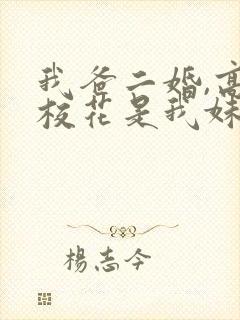 我爸二婚,高
校花是我妹
楊志今